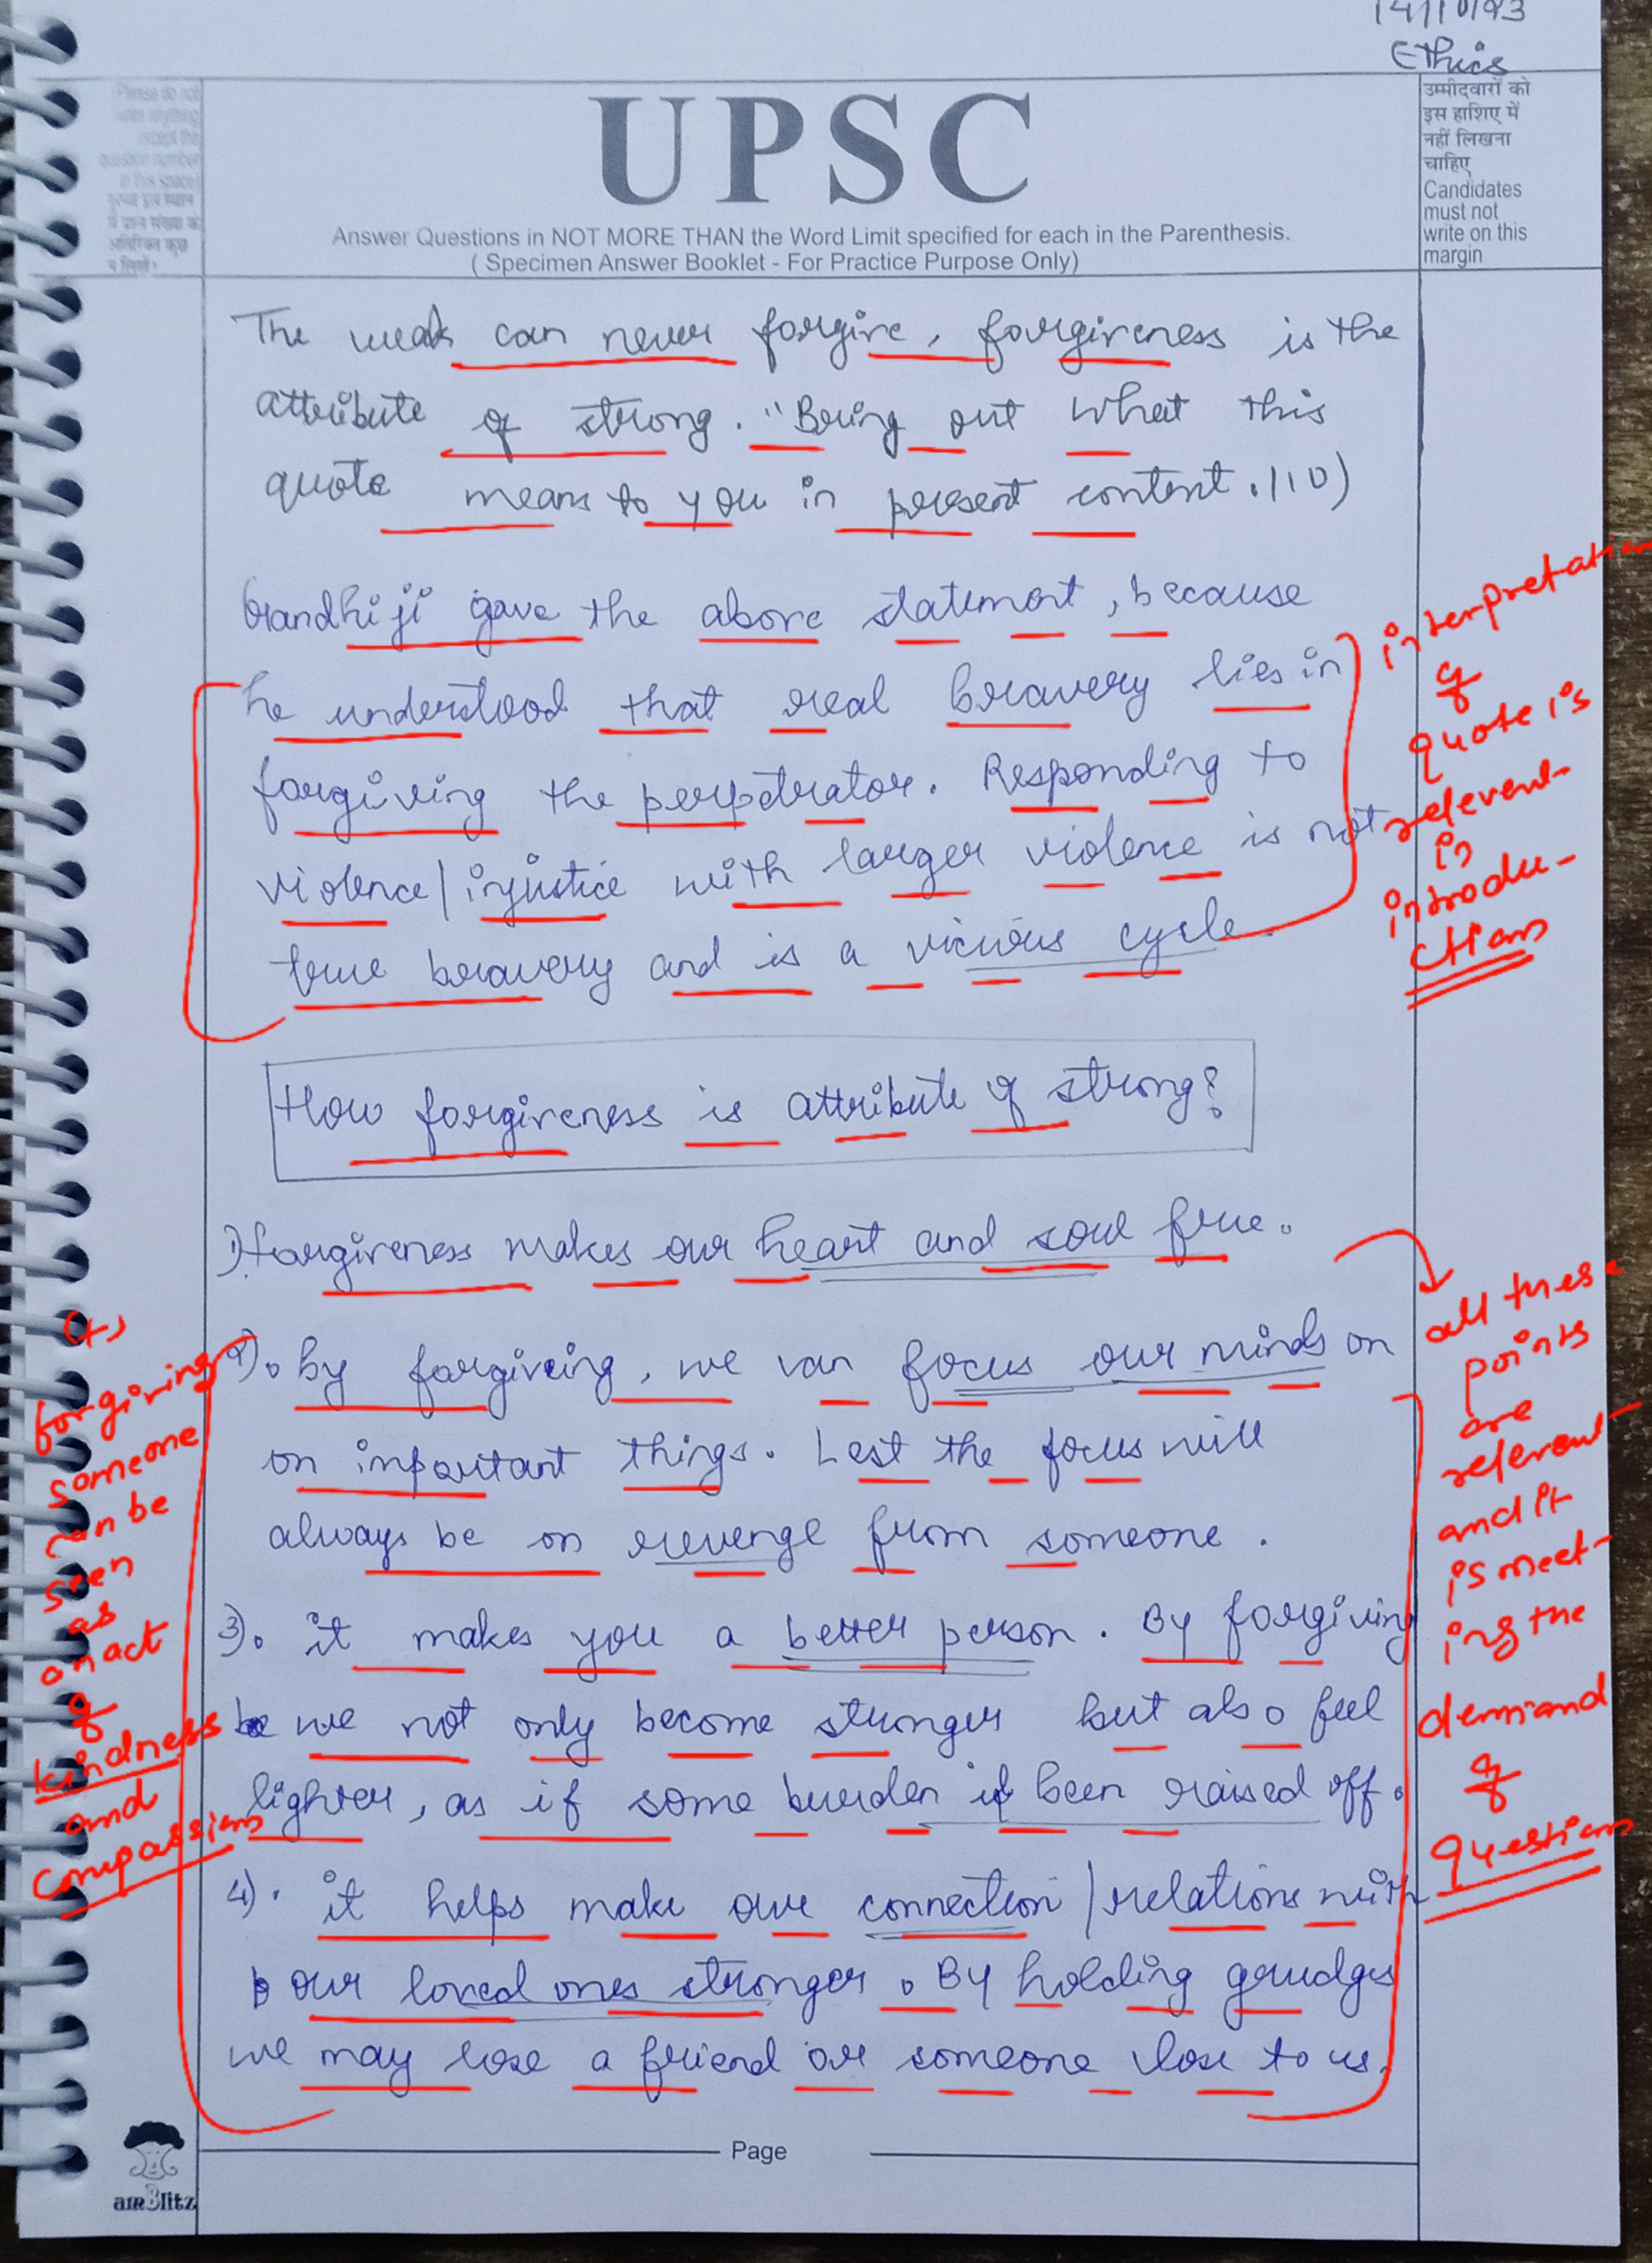 14/10/23
Ethics
Please do not
write anything
except the
question number
in this space
UPSC
Answer Questions in NOT MORE THAN the Word Limit specified for each in the Parenthesis.
( Specimen Answer Booklet - For Practice Purpose Only)
उम्मीदवारों को
इस हाशिए में
नहीं लिखना
चाहिए
Candidates
must not
write on this
margin
The weak can never forgive, forgiveness is the
attribute of strong. "Bring out what this
quote means to you in present content. (10)
Gandhiji gave the above statement, because
he understood that real bravery lies in
forgiving the perpetrator. Responding to
violence/injustice with larger violence is not
true bravery and is a vicious cycle.
interpretation
of
quote is
relevent
in
introdu-
ction
How forgiveness is attribute of strong?
1) forgiveness makes our heart and soul free.
2). by forgiving, we can focus our minds on
on important things. Lest the focus will
always be on revenge from someone.
3). it makes you a better person. By forgiving
we not only become stronger but also feel
lighter, as if some burden if been raised off.
4). it helps make our connection/relations with
our loved ones stronger. By holding grudges
we may lose a friend or someone close to us.
(+)
forgiving
someone
can be
seen
as
an act
of
kindness
and
compassion
all these
points
are
relevent
and it
is meet-
ing the
demand
of
question
Page
amBlitz